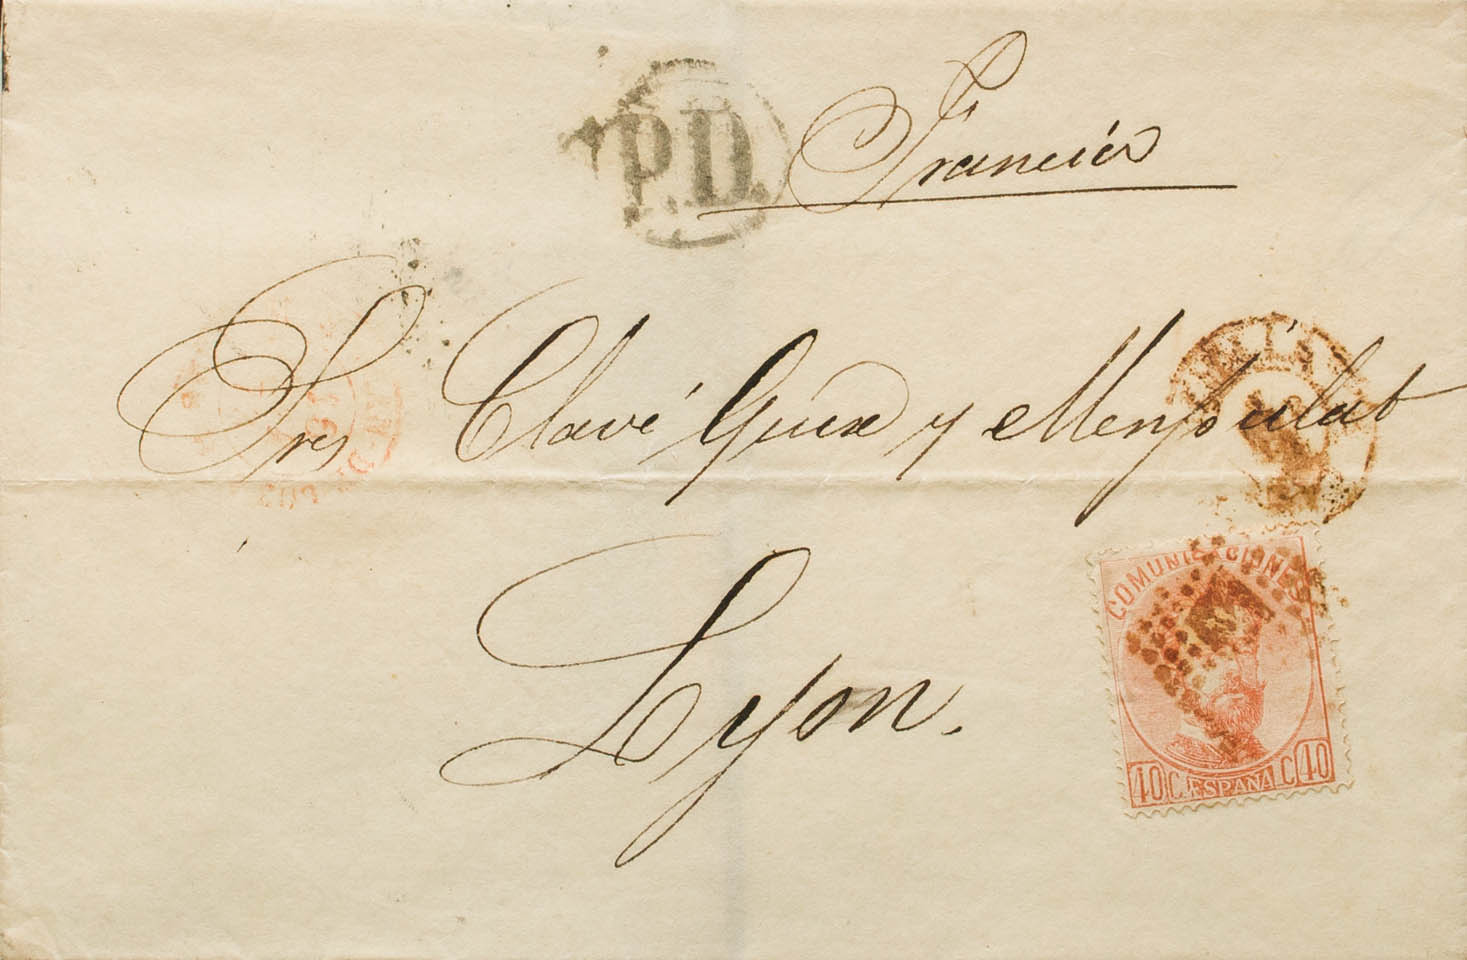 P.D.
Francia
Sres Clavé Guix y Monsulat
Lyon.
COMUNICACIONES
40 C. ESPAÑA C 40